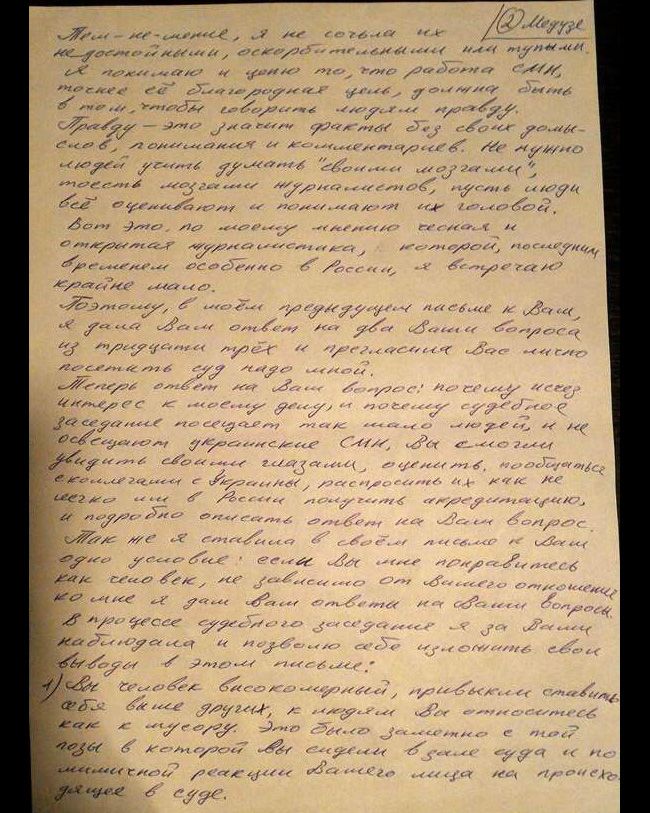 ② Медузе
Тем-не-мение, я не сочьла их
не достойными, оскорбительными или тупыми.
Я понимаю и ценю то, что работа СМИ,
точнее её благородная цель, должна быть
в том, чтобы говорить людям правду.
Правду – это значит факты без своих домы-
слов, понимания и комментариев. Не нужно
людей учить думать "своими мозгами",
тоесть мозгами журналистов, пусть люди
всё оценивают и понимают их головой.
Вот это, по моему мнению чесная и
открытая журналистика, которой, последним
временем особенно в России, я встречаю
крайне мало.
Поэтому, в моём предыдущем письме к Вам,
я дала Вам ответ на два Ваши вопроса
из тридцати трёх и прегласила Вас лично
посетить суд надо мной.
Теперь ответ на Ваш вопрос: почему исчез
интерес к моему делу, и почему судебное
заседание посещает так мало людей, и не
освещают украинские СМИ, Вы смогли
увидить своими глазами, оценить, пообщаться
с коллегами с Украины, распросить их как не
легко им в России получить акредитацию,
и подробно описать ответ на Ваш вопрос.
Так же я ставила в своём письме к Вам
одно условие: если Вы мне понравитесь
как человек, не зависимо от Вашего отношение
ко мне я дам Вам ответы на Ваши вопросы.
В процессе судебного заседание я за Вами
наблюдала и позволю себе изложить свои
выводы в этом письме:
1) Вы человек високомерный, привыкли ставить
себя выше других, к людям Вы относитесь
как к мусору. Это было заметно с той
позы в которой Вы сидели в зале суда и по
мимичной реакции Вашего лица на происхо-
дящее в суде.